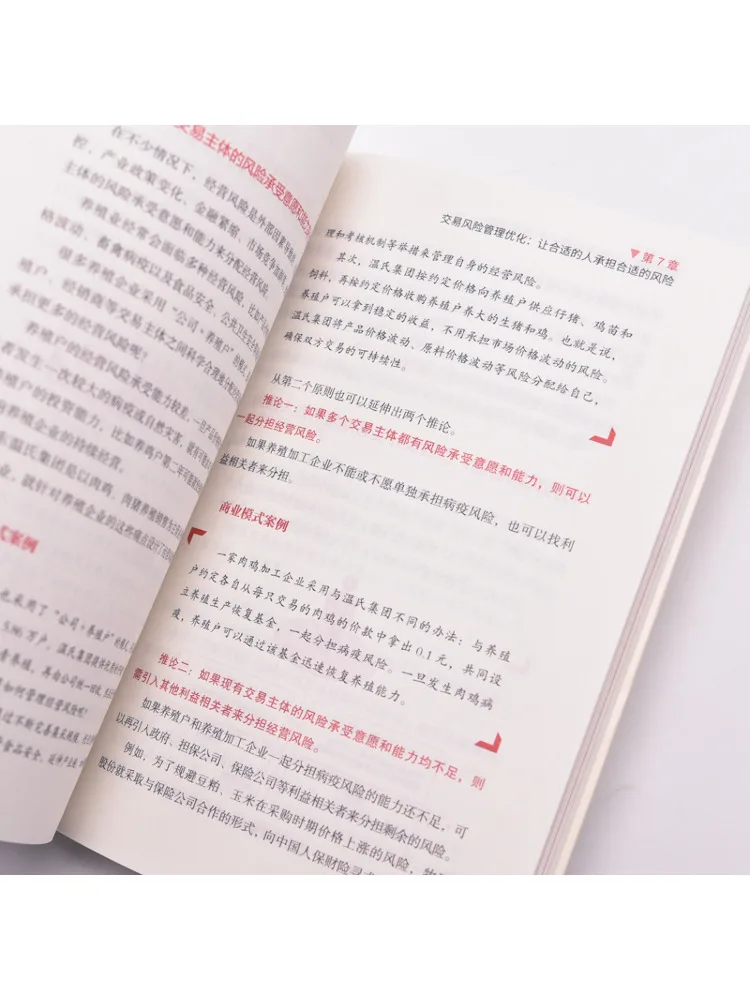 交易主体的风险承受意愿和能力
在不少情况下，经营风险是外部因素导致的
控、产业政策变化、金融紧缩、市场竞争加剧
主体的风险承受意愿和能力来分配经营风险。
养殖业经常会面临多种经营风险，比如
格波动、畜禽病疫以及食品安全、公共卫生安全
很多养殖企业采用“公司+养殖户”的模式
殖户、经销商等交易主体之间科学合理地分配
承担更多的经营风险呢？
养殖户的经营风险承受能力较差，一旦
者发生一次较大的病疫或自然灾害，就有可能
养殖户的投资能力，比如养鸡户第二年可能
养殖企业的持续经营。
温氏集团是以肉鸡、肉猪养殖销售为主
业，就针对养殖企业的这些难点设计了
式案例
也采用了“公司+养殖户”的模式
5.86万户，温氏集团
养殖，再由公司统一回收
如何管理经营风险呢？
过不断完善
食品安全、
▼第7章
交易风险管理优化：让合适的人承担合适的风险
理和考核机制等举措来管理自身的经营风险。
其次，温氏集团按约定价格向养殖户供应仔猪、鸡苗和
饲料，再按约定价格收购养殖户养大的生猪和鸡。也就是说，
养殖户可以拿到稳定的收益，不用承担市场价格波动的风险。
温氏集团将产品价格波动、原料价格波动等风险分配给自己，
确保双方交易的可持续性。
从第二个原则也可以延伸出两个推论。
推论一：如果多个交易主体都有风险承受意愿和能力，则可以
一起分担经营风险。
如果养殖加工企业不能或不愿单独承担病疫风险，也可以找利
益相关者来分担。
商业模式案例
一家肉鸡加工企业采用与温氏集团不同的办法：与养殖
户约定各自从每只交易的肉鸡的价款中拿出0.1元，共同设
立养殖生产恢复基金，一起分担病疫风险。一旦发生肉鸡病
疫，养殖户可以通过该基金迅速恢复养殖能力。
推论二：如果现有交易主体的风险承受意愿和能力均不足，则
需引入其他利益相关者来分担经营风险。
如果养殖户和养殖加工企业一起分担病疫风险的能力还不足，可
以再引入政府、担保公司、保险公司等利益相关者来分担剩余的风险。
例如，为了规避豆粕、玉米在采购时期价格上涨的风险，
股份就采取与保险公司合作的形式，向中国人保财险寻